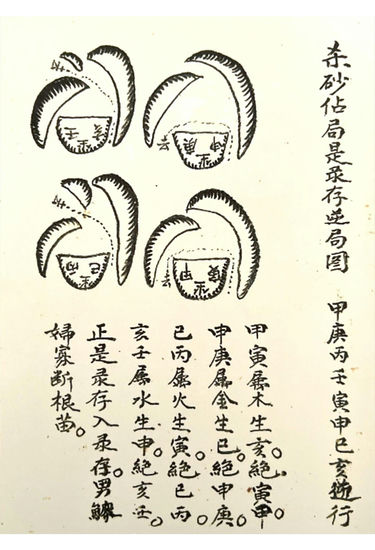 杀砂佔局是彔存逆局圖　甲庚丙壬寅申巳亥逆行
甲寅屬木生亥。絕寅甲。
申庚屬金生巳。絕申庚。
巳丙屬火生寅。絕巳丙。
亥壬屬水生申。絕亥壬。
正是彔存入彔存男鰥
婦寡断根苗。